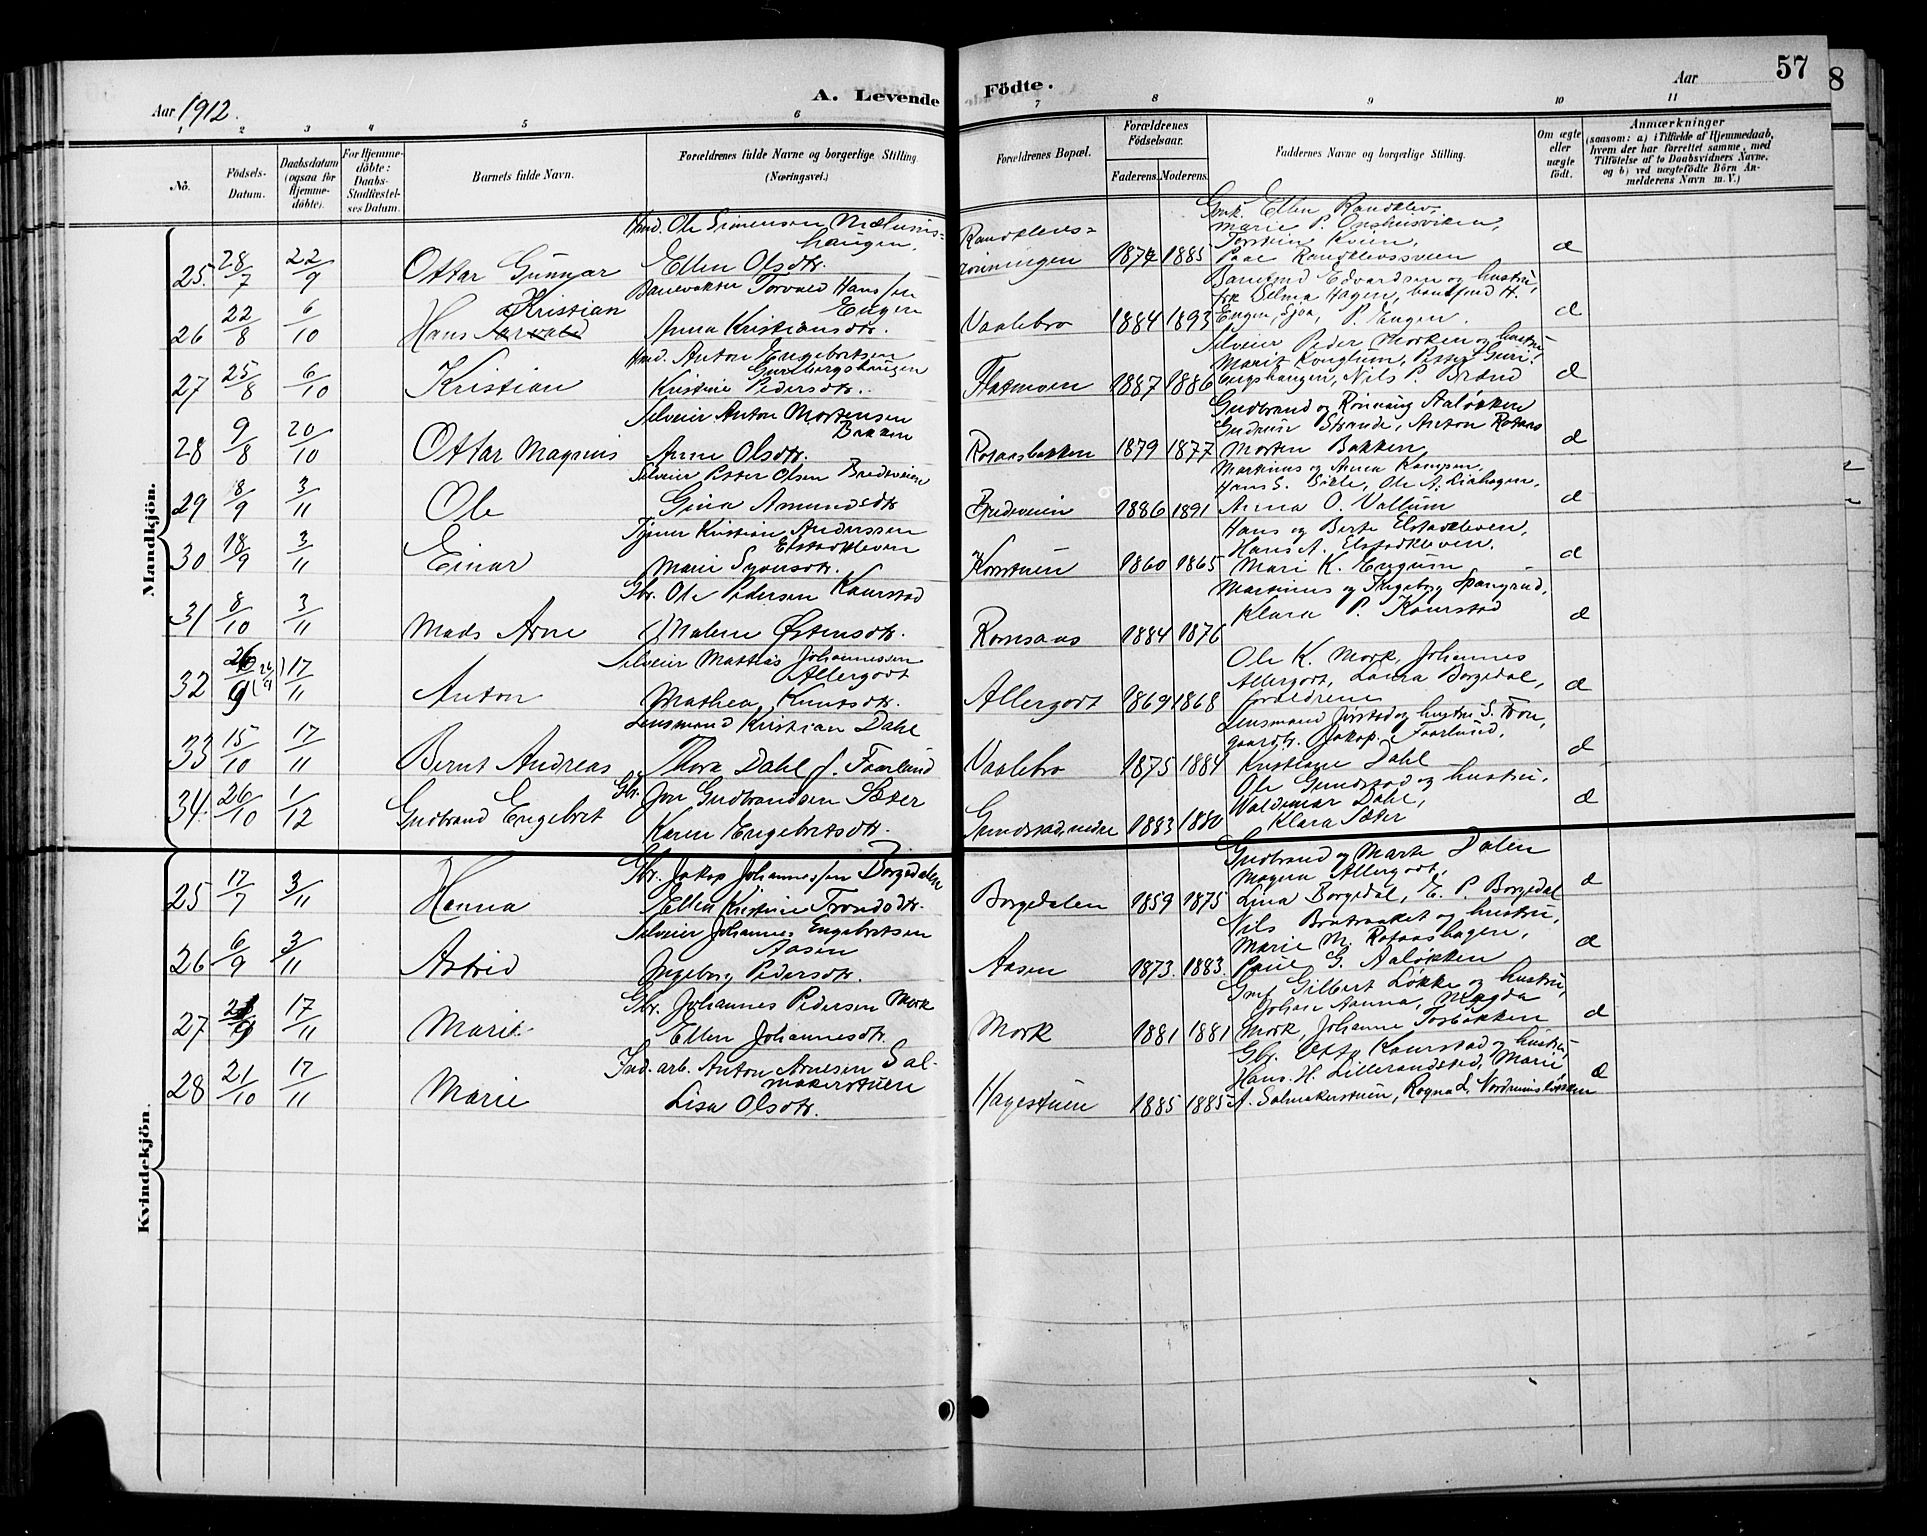 57
8
Aar 1912.
A. Levende Födte.
Aar
1 2 3 4 5 6 7 8 9 10 11
No.
Födsels-Datum.
Daabsdatum (ogsaa for Hjemmedöbte).
For Hjemmedöbte: Daabs-Stadfæstelses Datum.
Barnets fulde Navn.
Forældrenes fulde Navne og borgerlige Stilling. (Næringsvei.)
Forældrenes Bopæl.
Forældrenes Födselsaar.
Faderens. Moderens.
Faddernes Navne og borgerlige Stilling.
Om ægte eller uægte födt.
Anmærkninger (saasom: a) i Tilfælde af Hjemmedaab, hvem der har forrettet samme, med Tilföielse af to Daabsvidners Navne, og b) ved uægtefödte Börn Anmelderens Navn m. V.)
Mandkjön.
25. 28/7 22/9 Ottar Gunnar
Ole Simensen
Ellen Olsdtr.
Randklevs-
rönningen 1874 1885
Ellen Randklev,
Marie P.
Torstein Kvien,
Paal Randklevssveen
d
26 22/8 6/10 Hans Torvald Kristian
Banevokter Torvald Hanssen
Engen
Anna Kristiansdtr.
Vaalebro 1884 1893
Banefmd Edvardsen og hustru,
frk Selma Hagen, banefmd H.
Engen, Sjoa, P. Engen.
d
27 25/8 6/10 Kristian
Anton Engebretsen
Kristine Pedersdtr.
Flatmoen 1887 1886
Selveier Peder Morken og hustru
Marit
haugen, Nils P.
d
28 9/8 20/10 Ottar Magnus
Selveier Anton Mortensen
Bakken
Anne Olsdtr.
Rotaasbakken 1879 1877
Gudbrand og Rönnaug Aalökken
Gudrun Strande, Anton Rotaas
Morten Bakken
d
29 8/9 3/11 Ole
Selveier Petter Olsen Bredeveien
Gina Amundsdtr
Bredeveien 1886 1891
Martinus og Anna Kampen,
Hans S. Ole A. Liahagen,
Anna O. Vollum
d
30 18/9 3/11 Einar
Kristian Anderssen
Elstadkleven
Marie Syversdtr.
Kornstuen 1860 1865
Hans og Berte Elstadkleven,
Hans A. Elstadkleven.
Mari K. Engum
d
31 8/10 3/11 Mads Arne
Gbr. Ole Pedersen Kaurstad
Malene Östensdtr.
Romsaas 1884 1876
Martinus og Ingeborg Spangrud,
Klara P. Kaurstad
d
32 26/9 (26/9) 17/11 Anton
Selveier Mattias Johannessen
Allergodt
Mathea Knutsdtr.
Allergodt 1869 1868
Ole K. Mork, Johannes
Allergodt, Laura Borgedal,
forældrene
d
33 15/10 17/11 Bernt Andreas
Lensmand Kristian Dahl
Thora Dahl f. Faarlund
Vaalebro 1875 1884
Lensmand Jörstad og hustru S. Tron,
gaardbr. Jakop. Faarlund,
Kristiane Dahl
d
34. 26/10 1/12 Gudbrand Engebret
Gbr. Jon Gudbrandsen Sæter
Karen Engebretsdtr.
Gundstad, nedre 1883 1880
Ole Gundstad og hustru,
Waldemar Dahl,
Klara Sæter
d
Kvindekjön.
25 17/7 3/11 Hanna
Gbr. Jakop Johannessen Borgedalen
Ellen Kristine Trondsdtr.
Borgedalen 1859 1875
Gudbrand og Marte Dalen
Magna Allergodt,
Lina Borgedal, E. P. Borgedal
d
26 6/9 3/11 Astrid
Selveier Johannes Engebretsen
Aasen
Ingeborg Pedersdtr.
Aasen 1873. 1883.
Nils Braatbakket og hustru,
Marie M. Rotaashagen,
Paul G. Aalökken
d
27 17/11 Marit
Gbr. Johannes Pedersen Mork
Ellen Johannesdtr.
Mork 1881 1881
Gilbert Løkke og hustru,
Magda
Mork, Johanne Torbakken
d
28 21/10 17/11 Marie
Ind. arb. Anton Arnesen Sal-
makerstuen
Lisa Olsdtr.
Hagestuen 1885 1885
Gbr. Otto Kaurstad og hustru,
Hans. H. Lillerandstad, Marie
A. Salmakerstuen, Ragna L. Nordrumsløkken
d